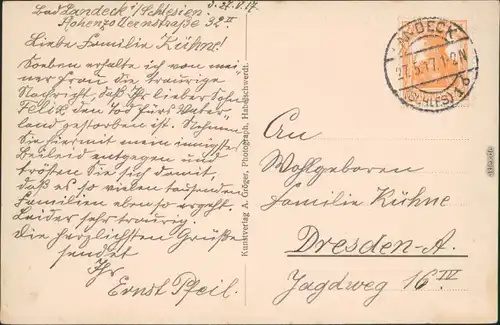 Bad Landeck i/Schlesien. d. 27.V.17.
Hohenzollernstraße 32 II
Liebe Familie Kühne!
Soeben erhalte ich von mei-
ner Frau die traurige
Nachricht, daß Ihr lieber Sohn
Felix den Tod fürs Vater-
land gestorben ist. Nehmen
Sie hiermit mein innigstes
Beileid entgegen und
trösten Sie sich damit,
daß es so vielen tausenden
Familien ebenso ergeht.
Leider sehr traurig.
Die herzlichsten Grüße
sendet
Ihr
Ernst Pfeil.
Kunstverlag A. Gröger, Photograph, Habelschwerdt.
LANDECK
27.5.17.1-2N
(SCHLES)
An
Wohlgeboren
Familie Kühne
Dresden-A.
Jagdweg 16 IV